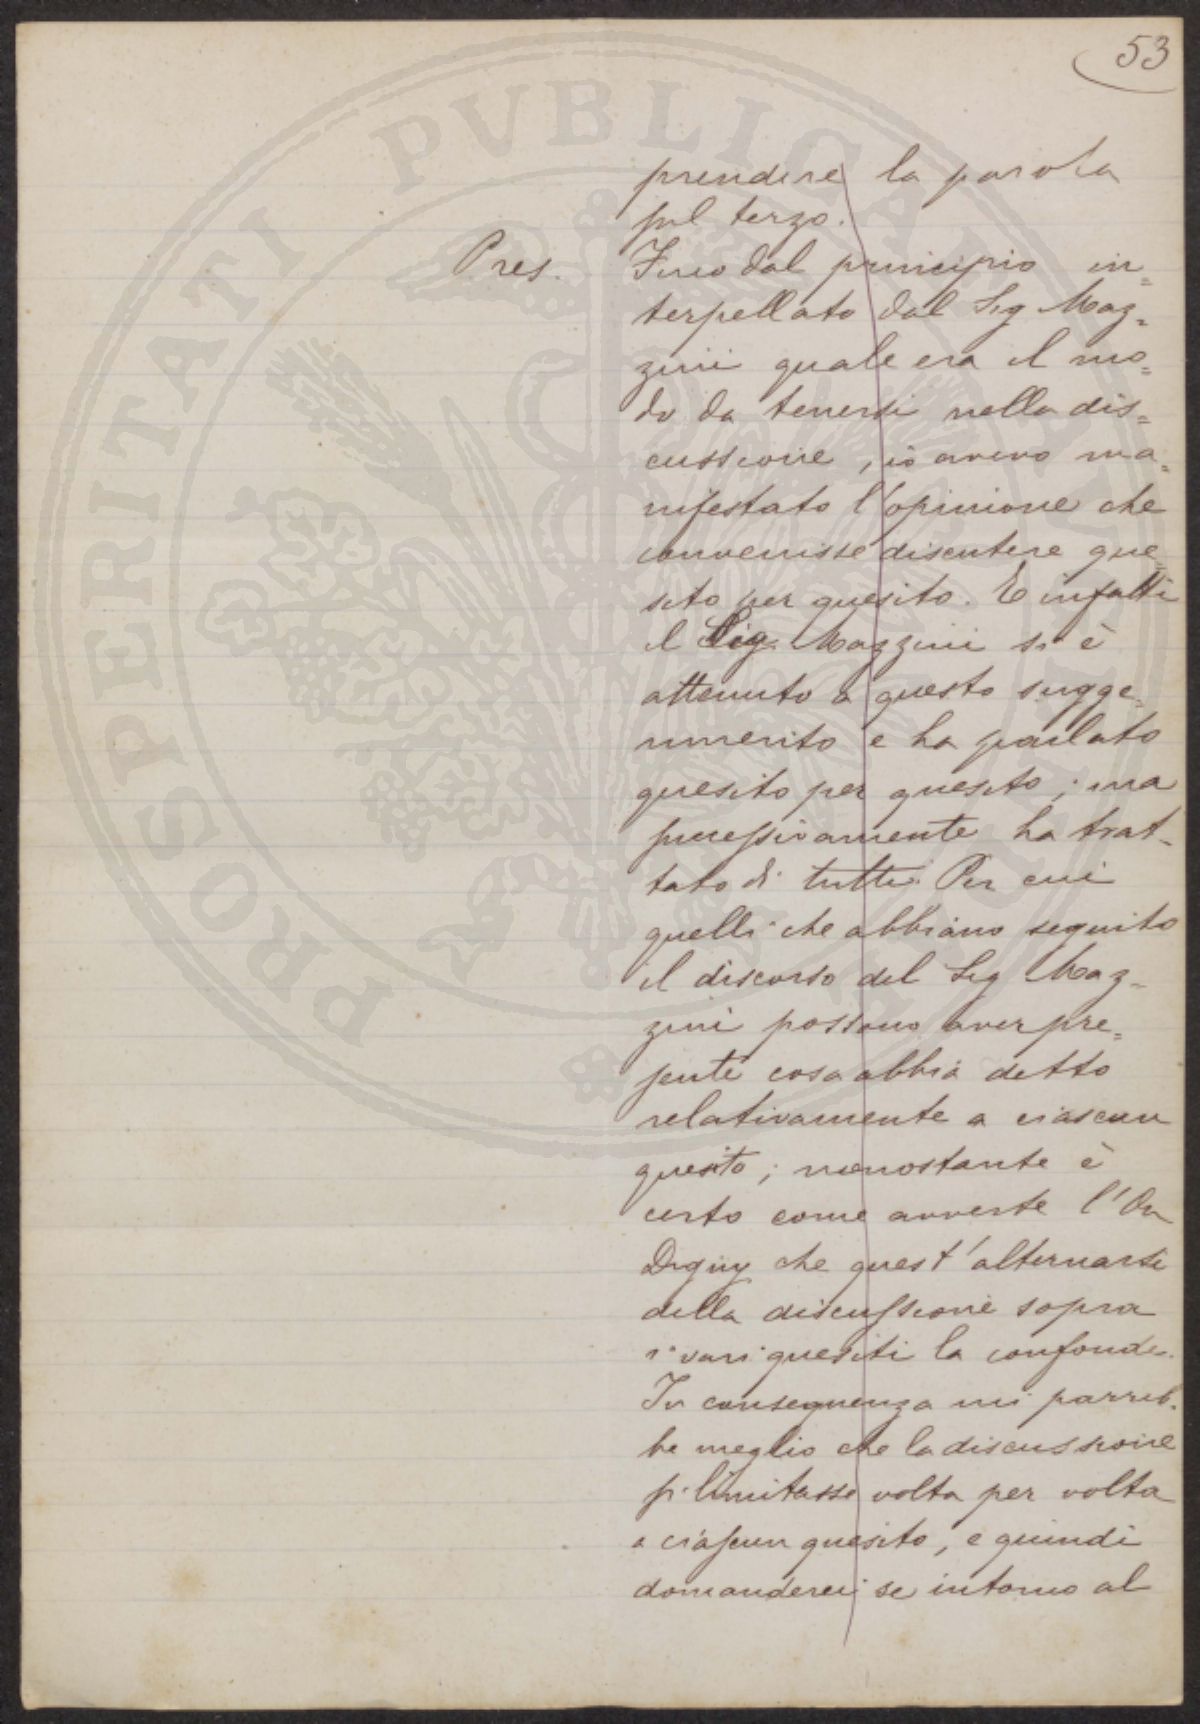 53
prendere la parola
sul terzo.
Pres. Fino dal principio in=
terpellato dal Sig Maz=
zini quale era il mo=
do da tenersi nella dis=
cussione, io avevo ma=
nifestato l'opinione che
convenisse discutere que
sito per quesito. E infatti
il Sig. Mazzini si è
attenuto a questo sugge=
rimento e ha parlato
quesito per quesito; ma
successivamente ha trat=
tato di tutti. Per cui
quelli che abbiano seguito
il discorso del Sig Maz=
zini possono aver pre=
sente cosa abbia detto
relativamente a ciascun
quesito; nonostante è
certo come avverte l'On
Digny che quest'alternarsi
della discussione sopra
i vari quesiti la confonde.
In conseguenza mi parreb=
be meglio che la discussione
si limitasse volta per volta
a ciascun quesito, e quindi
domanderei se intorno al
PROSPERITATI PVBLICAE